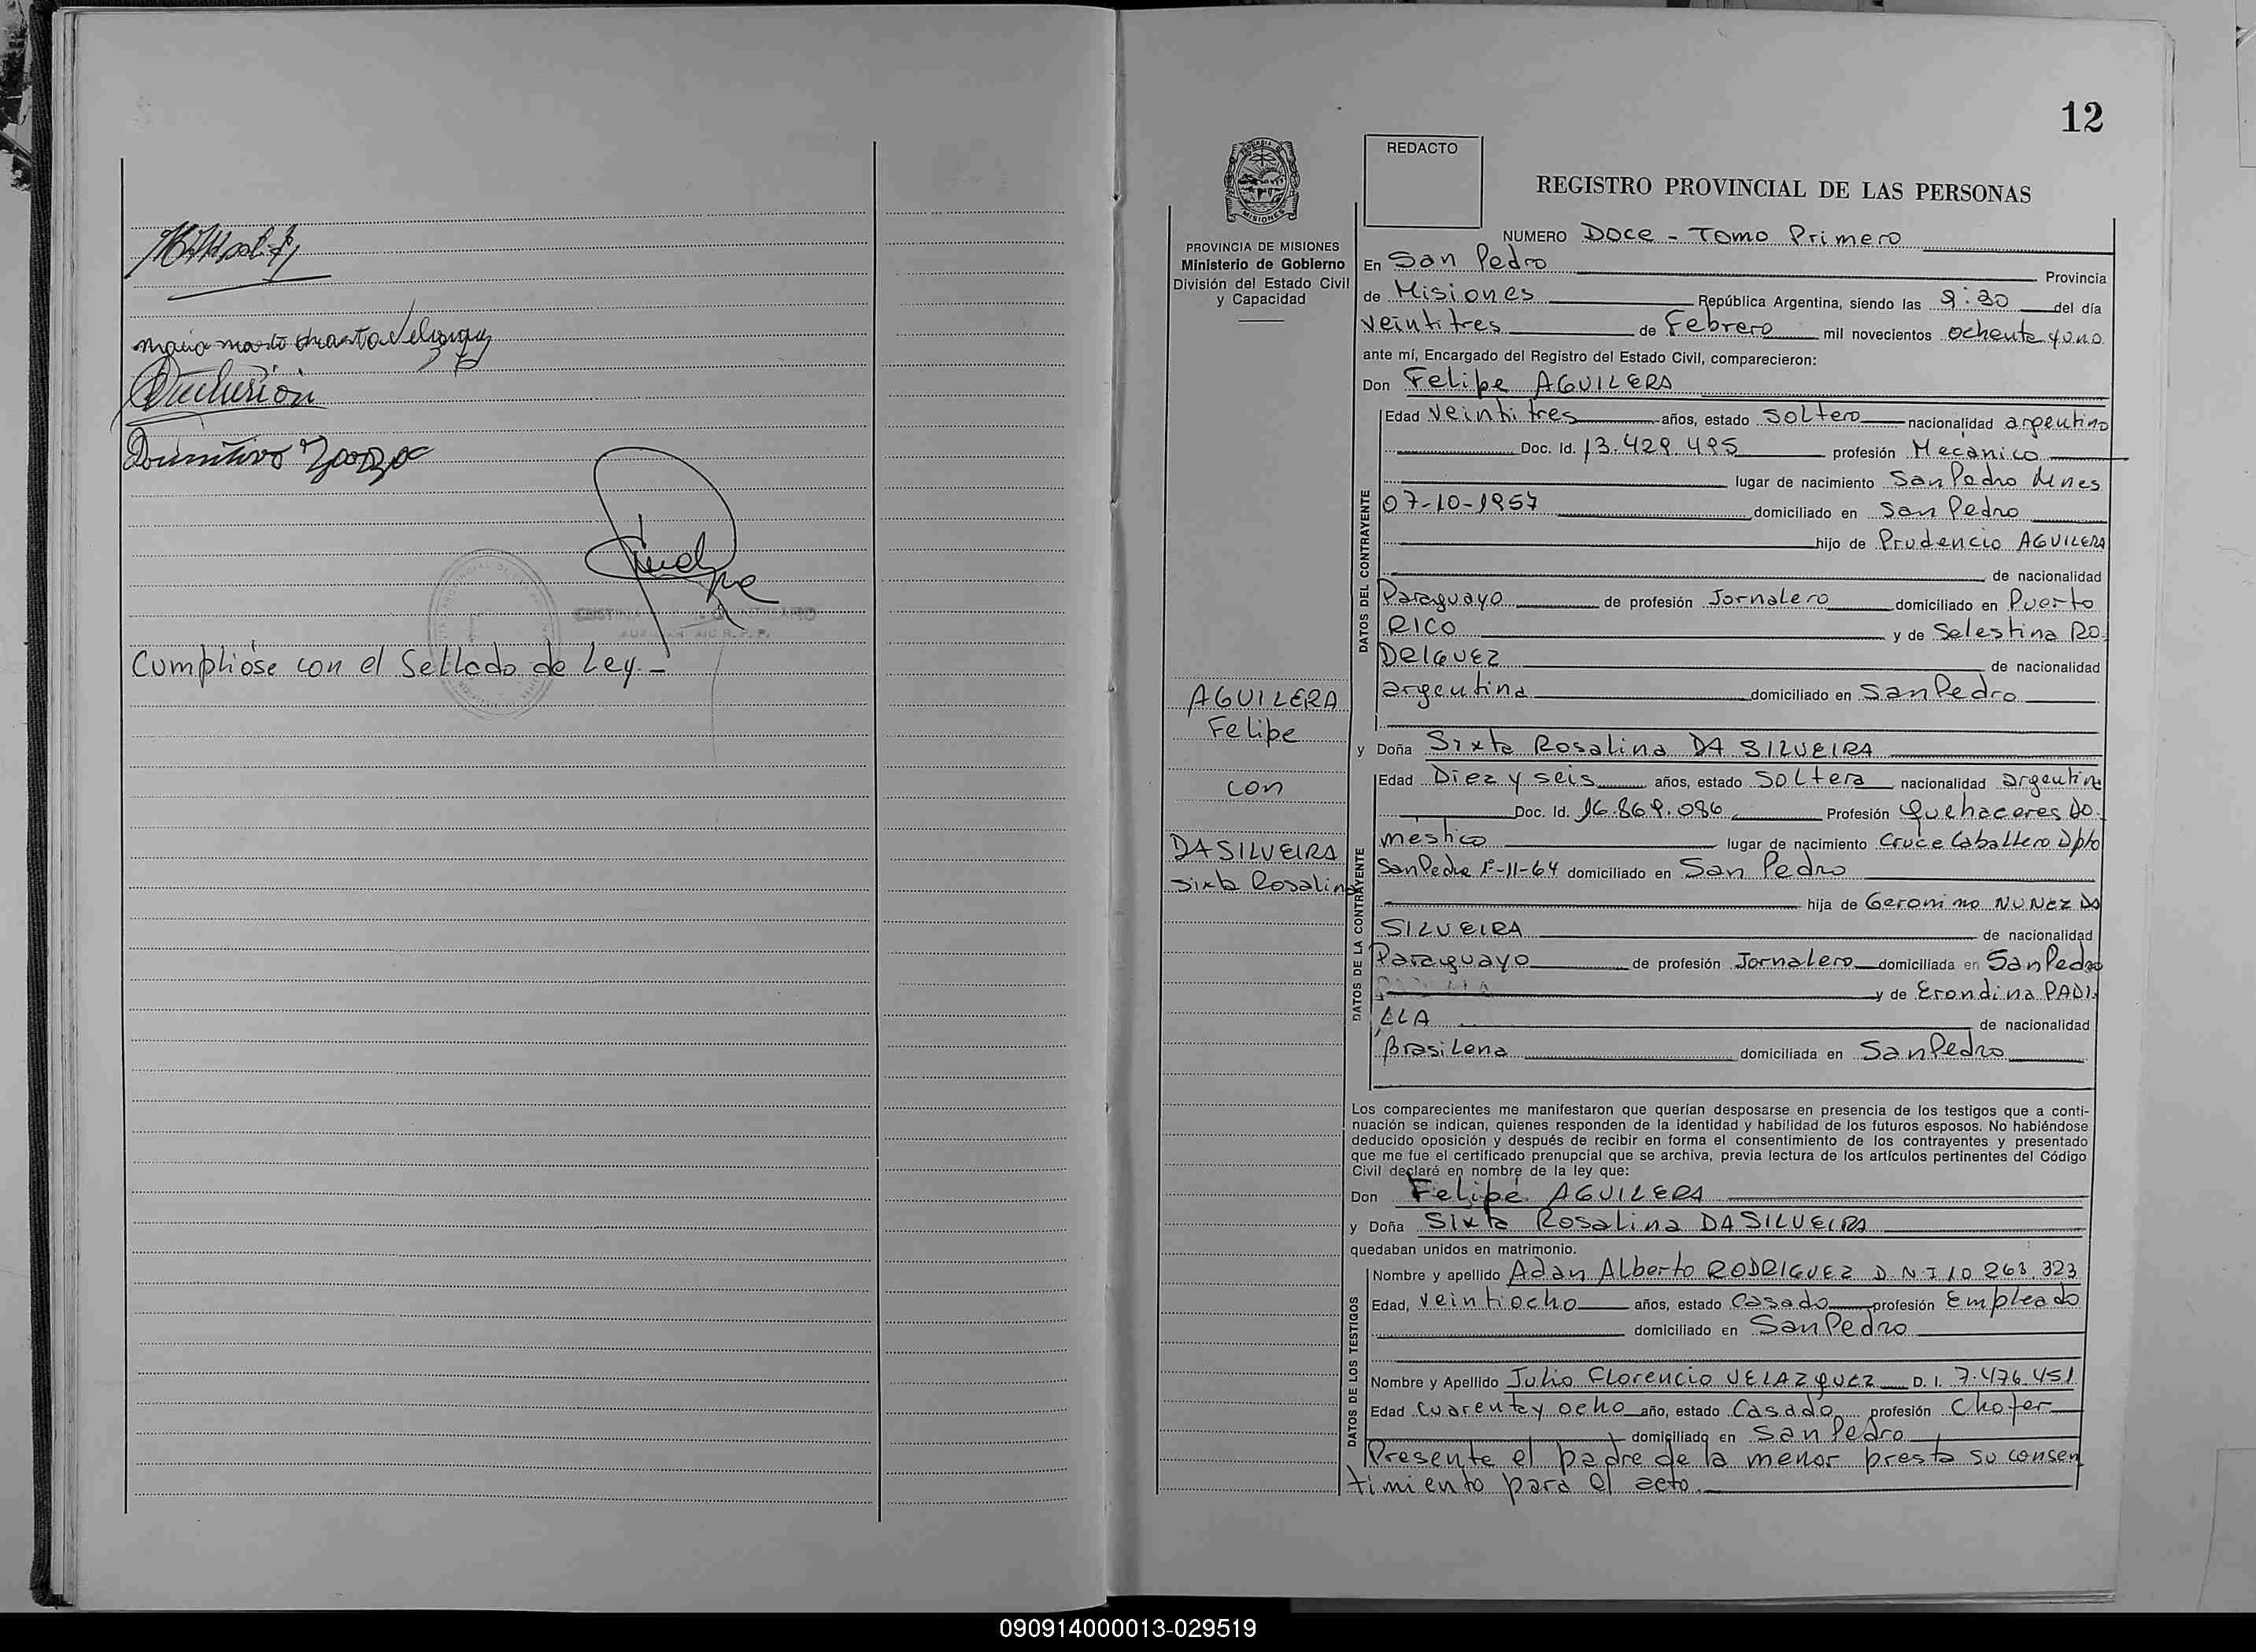 Cumplióse con el Sellado de Ley.-
12
PROVINCIA DE MISIONES
Ministerio de Gobierno
División del Estado Civil
y Capacidad
REDACTO
REGISTRO PROVINCIAL DE LAS PERSONAS
NUMERO Doce - Tomo Primero
En San Pedro Provincia
de Misiones República Argentina, siendo las 9:30 del día
veintitres de Febrero mil novecientos ochenta y uno
ante mí, Encargado del Registro del Estado Civil, comparecieron:
Don Felipe AGUILERA
DATOS DEL CONTRAYENTE
Edad veintitres años, estado Soltero nacionalidad argentino
Doc. Id. 13.429.495 profesión Mecánico
lugar de nacimiento San Pedro Mnes
07-10-1957 domiciliado en San Pedro
hijo de Prudencio AGUILERA
de nacionalidad
Paraguayo de profesión Jornalero domiciliado en Puerto
RICO y de Selestina RO
DRIGUEZ de nacionalidad
argentina domiciliado en San Pedro
AGUILERA
Felipe
con
DA SILVEIRA
Sixta Rosalina
y Doña Sixta Rosalina DA SILVEIRA
DATOS DE LA CONTRAYENTE
Edad Diez y seis años, estado Soltera nacionalidad argentina
Doc. Id. 16.869.086 Profesión Quehaceres Do-
mestico lugar de nacimiento Cruce Caballero Dpto
San Pedro 1º-11-64 domiciliado en San Pedro
hija de Geronimo NUNEZ DA
SILVEIRA de nacionalidad
Paraguayo de profesión Jornalero domiciliada en San Pedro
y de Erondina PADI-
LLA de nacionalidad
Brasilena domiciliada en San Pedro
Los comparecientes me manifestaron que querían desposarse en presencia de los testigos que a conti-
nuación se indican, quienes responden de la identidad y habilidad de los futuros esposos. No habiéndose
deducido oposición y después de recibir en forma el consentimiento de los contrayentes y presentado
que me fue el certificado prenupcial que se archiva, previa lectura de los artículos pertinentes del Código
Civil declaré en nombre de la ley que:
Don Felipe AGUILERA
y Doña Sixta Rosalina DA SILVEIRA
quedaban unidos en matrimonio.
DATOS DE LOS TESTIGOS
Nombre y apellido Adan Alberto RODRIGUEZ D.N.I 10.263.323
Edad, veintiocho años, estado Casado profesión Empleado
domiciliado en San Pedro
Nombre y Apellido Julio Florencio VELAZQUEZ D. I. 7.476.451
Edad cuarenta y ocho año, estado Casado profesión Chofer
domiciliado en San Pedro
Presente el padre de la menor presta su consen
timiento para el acto.
090914000013-029519